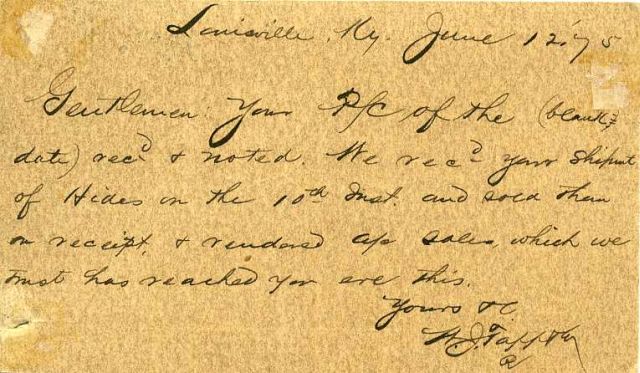 Louisville, Ky. June 12, '75
Gentlemen: Your P/C of the (blank
date) recd & noted. We recd your shipmt
of Hides on the 10th Inst. and sold them
on receipt, & rendered a/c sales, which we
trust has reached you ere this.
Yours &c.